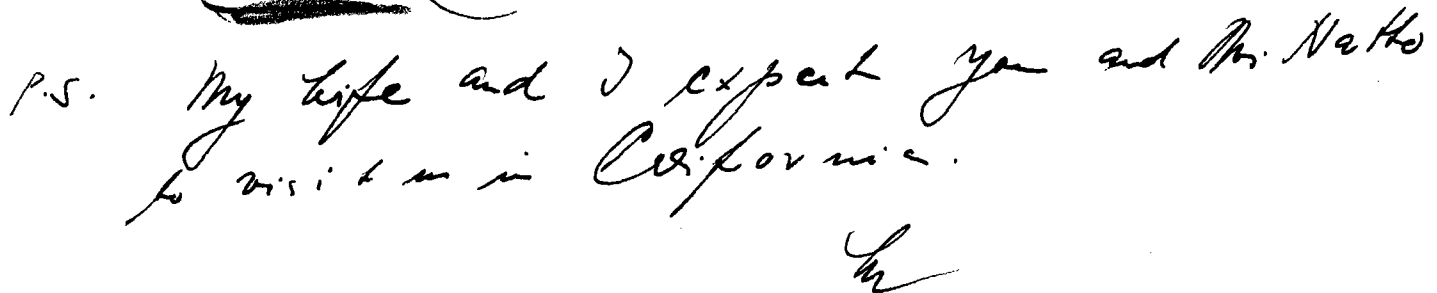 P.S. My wife and I expect you and Mr. Natho
to visit us in California.